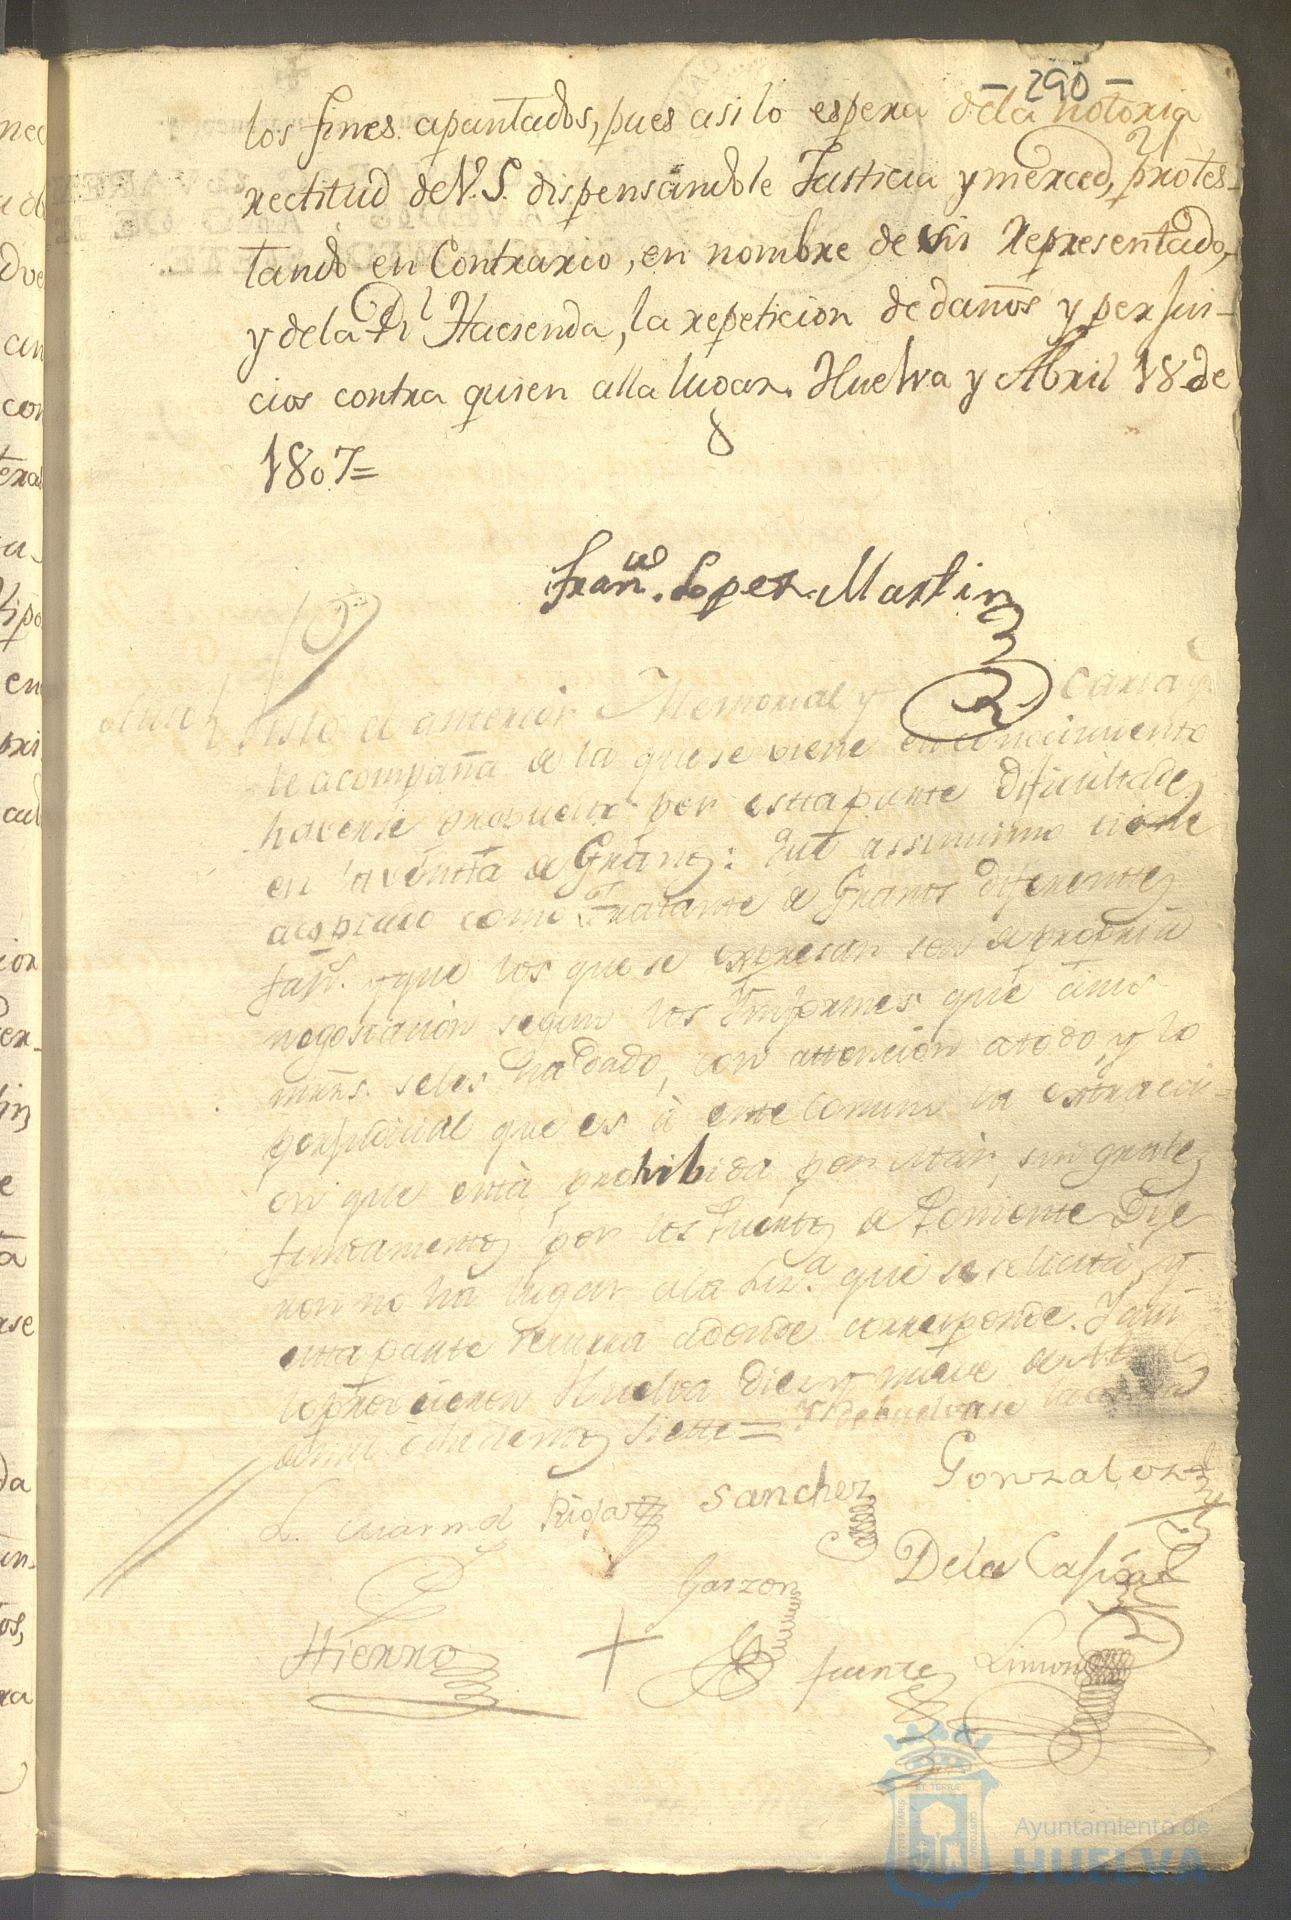 - 290 -
los fines apuntados, pues asi lo espera de la notoria
rectitud de V.S. dispensandole Justicia y merced, protes-
tando en Contrario, en nombre de su Representado,
y de la Rl Hacienda, la repeticion de daños y perjui-
cios contra quien alla lugar. Huelva y Abril 18 de
1807=
Franco. Lopez Martin
Visto el anterior Memorial y Carta q
le acompaña de la que se viene en conocimiento
haverse propuesto por esta parte dificultades
en la venta de Granos: Que assimismo tiene
acopiado como tratante de Granos diferentes
fans. y que los que se expresan son de propria
negociacion segun los Informes que a sus
mrds. seles ha dado, con attencion a todo, y lo
perjudicial que es à este Comun la extracci-
on que está prohibida por Mar, sin graves
fundamentos por los Puertos de Poniente Dije
ron no ha lugar a la Liza. que se solicita, y
esta parte recurra adonde corresponde. Y assi
lo proveieron Huelva diez y nueve de Abril
de mil ochocientos siette= Y debuelvase
Rioja Sanchez Gonzalez
Garzon De la Casa
Hierro + Fuentes Limon
Ayuntamiento de
HUELVA